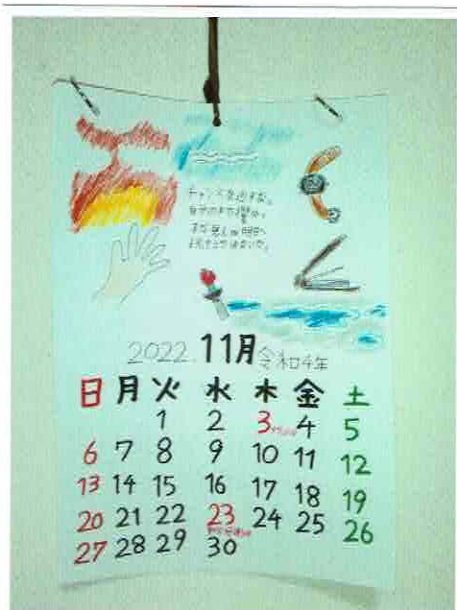 チャンスを逃すな。
自分の手で掴め。
2022. 11月 令和4年
日 月 火 水 木 金 土
1 2 3 4 5
6 7 8 9 10 11 12
13 14 15 16 17 18 19
20 21 22 23 24 25 26
27 28 29 30